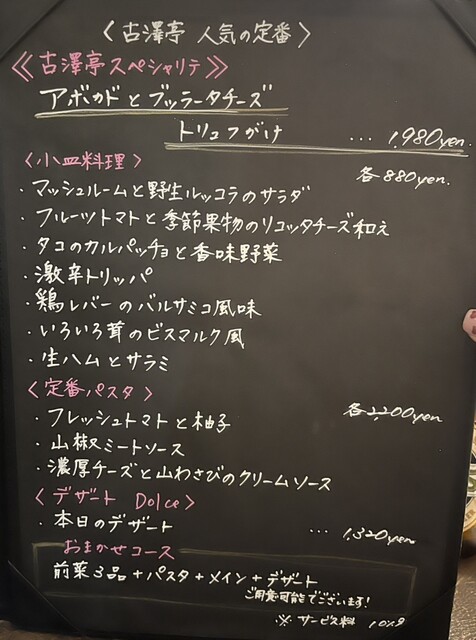 〈 古澤亭 人気の定番 〉
《古澤亭スペシャリテ》
アボカドとブッラータチーズ
トリュフがけ … 1,980yen.
〈小皿料理〉 各880yen.
・マッシュルームと野生ルッコラのサラダ
・フルーツトマトと季節果物のリコッタチーズ和え
・タコのカルパッチョと香味野菜
・激辛トリッパ
・鶏レバーのバルサミコ風味
・いろいろ茸のビスマルク風
・生ハムとサラミ
〈定番パスタ〉 各2,200yen
・フレッシュトマトと柚子
・山椒ミートソース
・濃厚チーズと山わさびのクリームソース
〈デザート Dolce〉
・本日のデザート … 1,320yen
おまかせコース
前菜3品+パスタ+メイン+デザート
ご用意可能でございます!
※ サービス料 10%